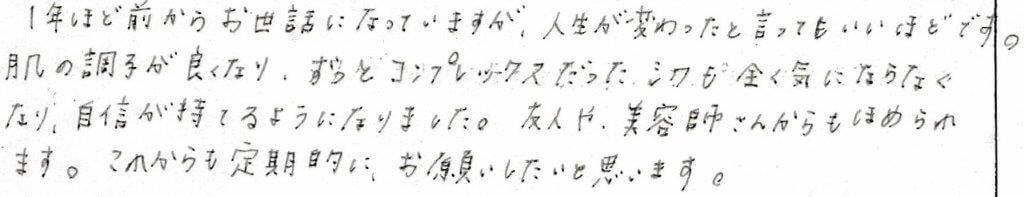 1年ほど前からお世話になっていますが、人生が変わったと言ってもいいほどです。
肌の調子が良くなり、ずっとコンプレックスだったシワも全く気にならなく
なり、自信が持てるようになりました。友人や、美容師さんからもほめられ
ます。これからも定期的に、お願いしたいと思います。